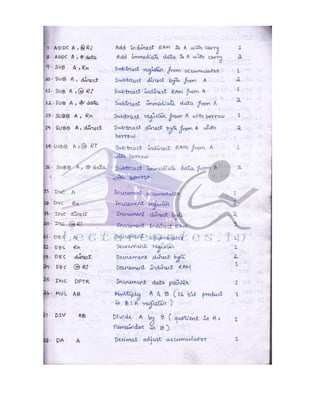 7. ADDC A, @Ri Add indirect RAM to A with carry 1
8. ADDC A, # data Add immediate data to A with carry 2
9. SUB A, Rn Subtract register from accumulator 1
10. SUB A, direct Subtract direct byte from A 2
11. SUB A, @Ri Subtract indirect RAM from A 1
12. SUB A, # data Subtract immediate data from A 2
13. SUBB A, Rn Subtract register from A with borrow 1
14. SUBB A, direct Subtract direct byte from A with 2
borrow
15. SUBB A, @Ri Subtract indirect RAM from A 1
with borrow
16. SUBB A, # data Subtract immediate data from A 2
with borrow
17. INC A Increment accumulator 1
18. INC Rn Increment register 1
19. INC direct Increment direct byte 2
20. INC @Ri Increment indirect RAM 1
21. DEC A Decrement accumulator 1
22. DEC Rn Decrement register 1
23. DEC direct Decrement direct byte 2
24. DEC @Ri Decrement indirect RAM 1
25. INC DPTR Increment data pointer 1
26. MUL AB Multiply A & B (16 bit product 1
in B:A register)
27. DIV AB Divide A by B (quotient to A, 1
remainder in B)
28. DA A Decimal adjust accumulator 1